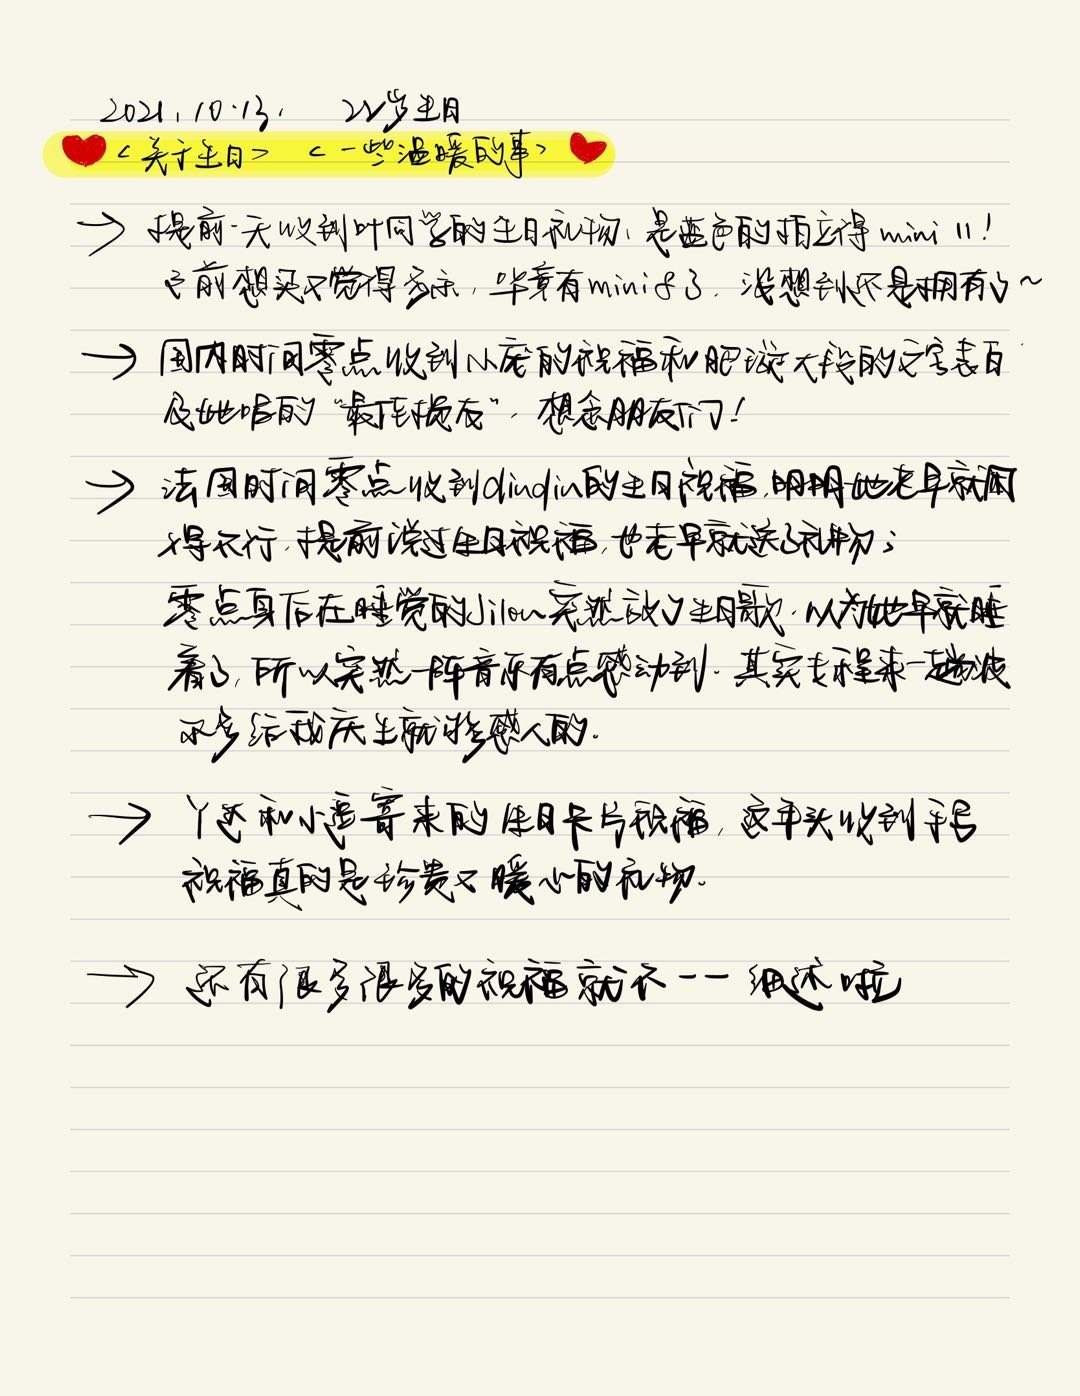 2021.10.13. 22岁生日
<关于生日> <一些温暖的事>
→ 提前一天收到叶同学的生日礼物，是蓝色的拍立得mini 11！
之前想买又觉得多余，毕竟有mini8了．没想到还是拥有了~
→ 国内时间零点收到从庆的祝福和肥璇大段的文字表白
及她唱的“最佳损友”，想念朋友们！
→ 法国时间零点收到qiuqiu的生日祝福，明明她老早就困
得不行，提前说过生日祝福，也老早就送了礼物；
零点身后在睡觉的突然放了生日歌．以为她早就睡
着了，所以突然一阵音乐有点感动到．其实专程来一趟波
尔多给我庆生就挺感人的．
→ 丫还和小寄来的生日卡片祝福，这年头收到手写
祝福真的是珍贵又暖心的礼物．
→ 还有很多很多的祝福就不一一细述啦